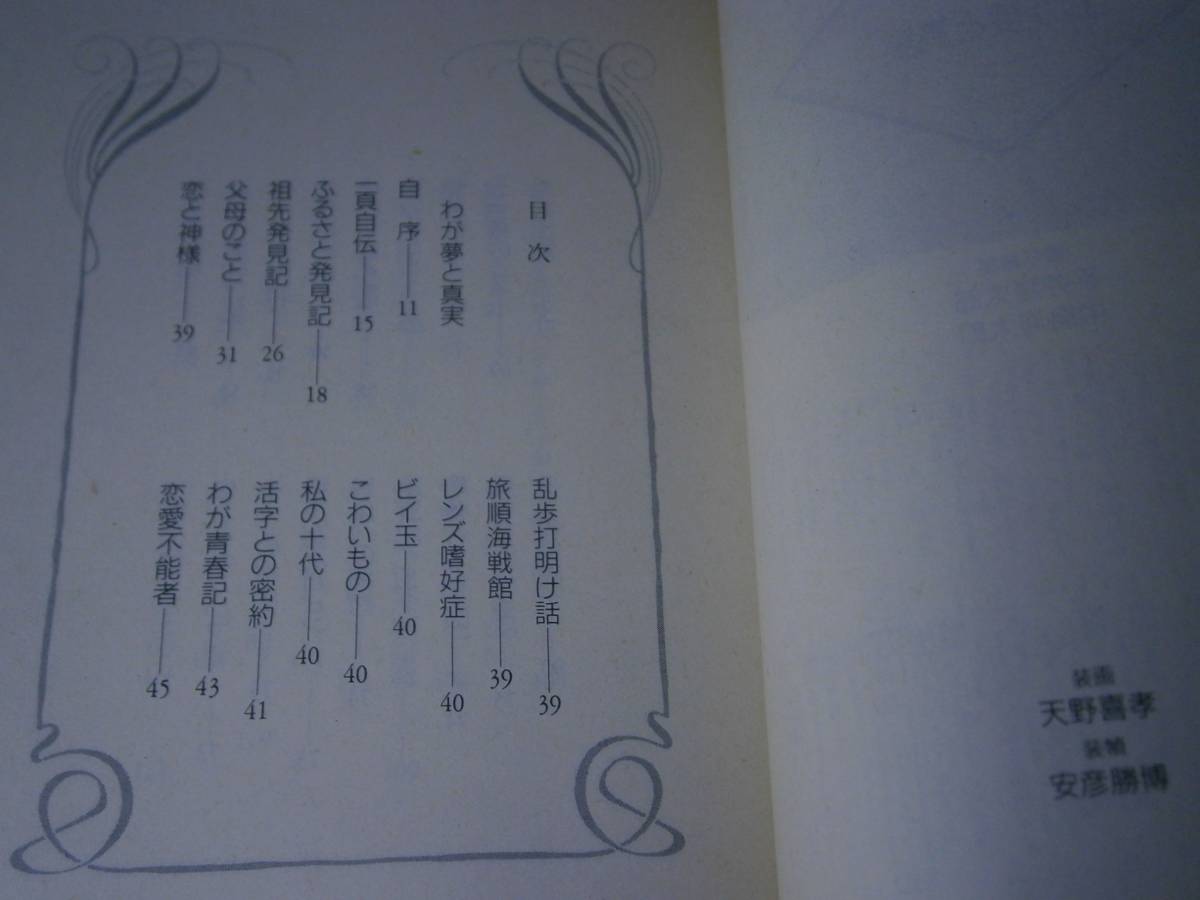 目次
わが夢と真実
自序――11
一頁自伝――15
ふるさと発見記――18
祖先発見記――26
父母のこと――31
恋と神様――39
乱歩打明け話――39
旅順海戦館――39
レンズ嗜好症――40
ビイ玉――40
こわいもの――40
私の十代――40
活字との密約――41
わが青春記――43
恋愛不能者――45
装画
天野喜孝
装幀
安彦勝博